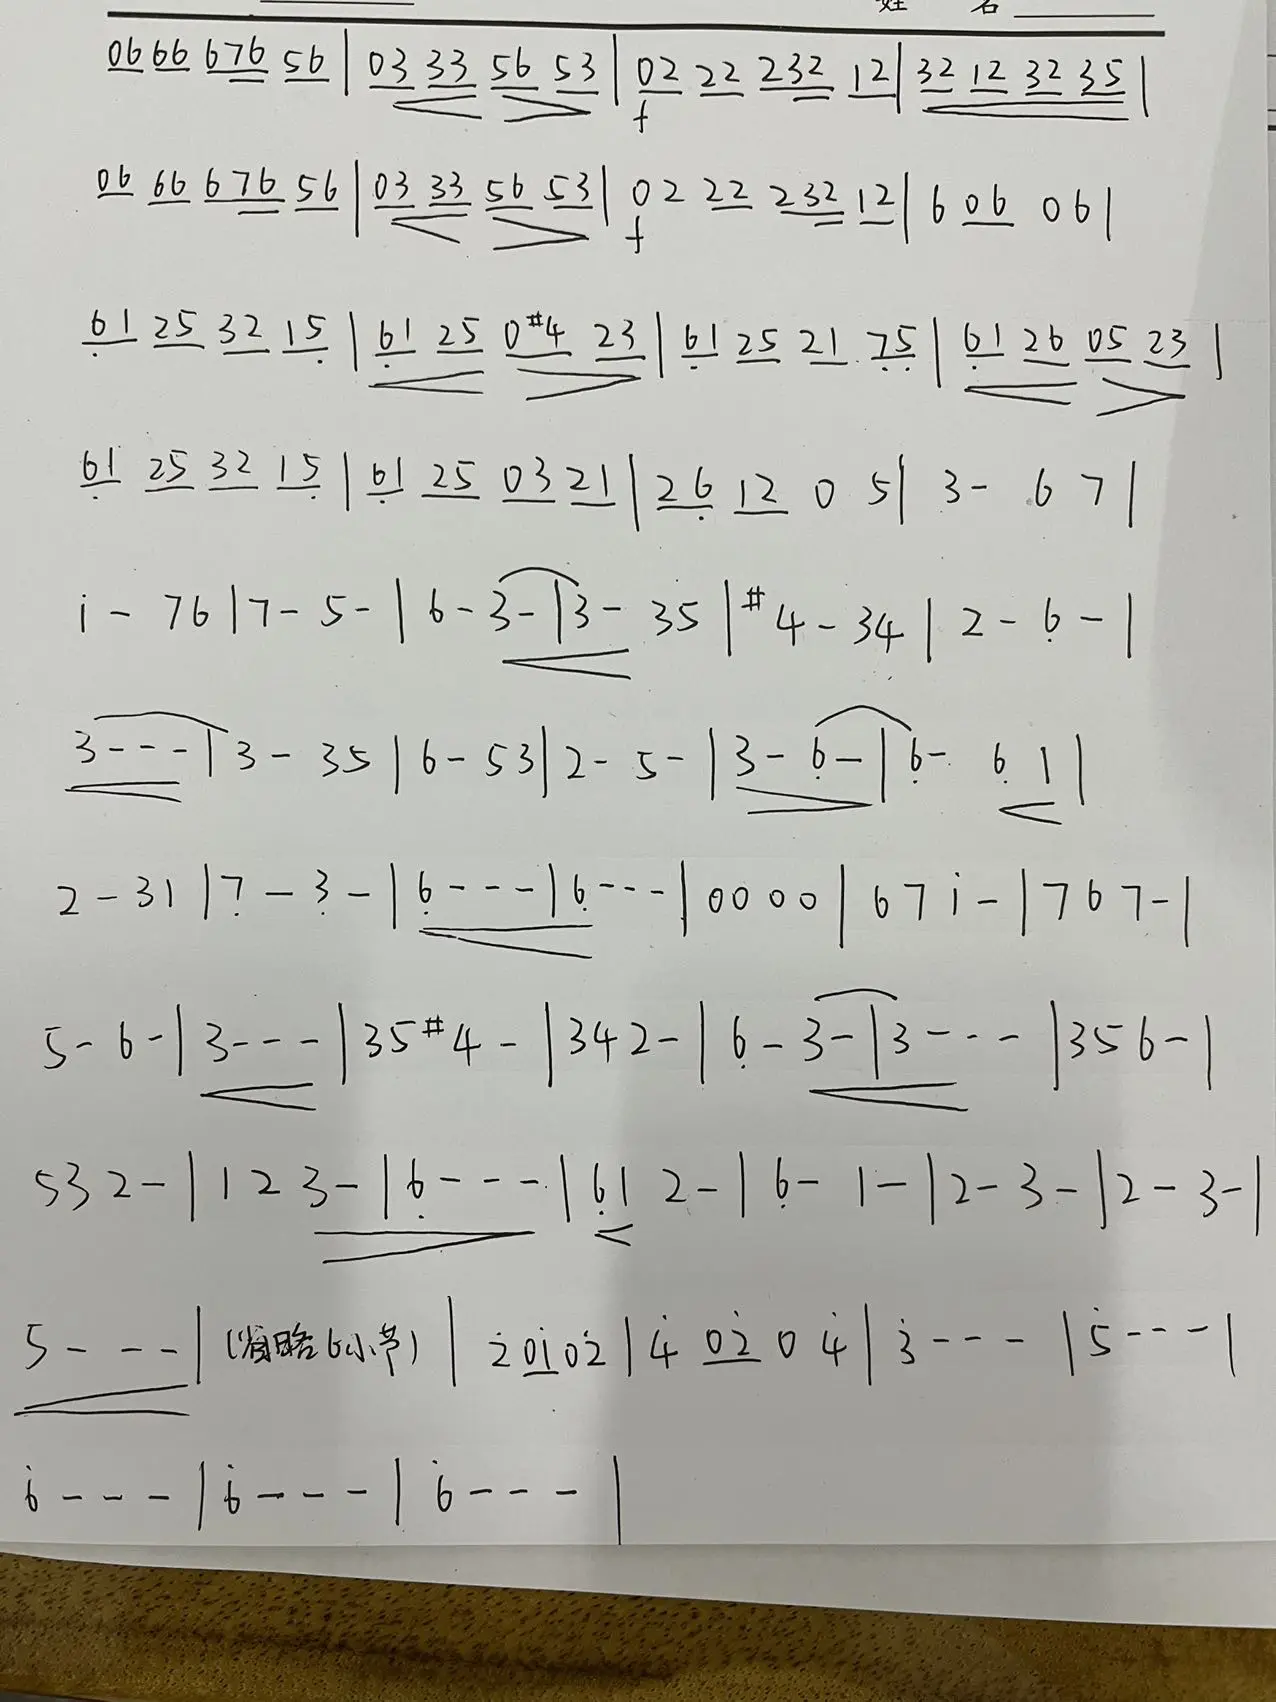 姓 名
06 66 676 56 | 03 33 56 53 | 02 22 232 12 | 32 12 32 35 |
f
06 66 676 56 | 03 33 56 53 | 02 22 232 12 | 6 06 06 |
f
61 25 32 15 | 61 25 0#4 23 | 61 25 21 75 | 61 26 05 23 |
61 25 32 15 | 61 25 03 21 | 26 12 0 5 | 3 - 6 7 |
i - 76 | 7 - 5 - | 6 - 3 - | 3 - 35 | #4 - 34 | 2 - 6 - |
3 - - - | 3 - 35 | 6 - 53 | 2 - 5 - | 3 - 6 - | 6 - 6 1 |
2 - 31 | 7 - 3 - | 6 - - - | 6 - - - | 0000 | 67 i - | 767 - |
5 - 6 - | 3 - - - | 35 #4 - | 342 - | 6 - 3 - | 3 - - - | 356 - |
532 - | 123 - | 6 - - - | 61 2 - | 6 - 1 - | 2 - 3 - | 2 - 3 - |
5 - - - | (省略6小节) | 2 01 02 | 4 02 0 4 | 3 - - - | 5 - - - |
6 - - - | 6 - - - | 6 - - - |